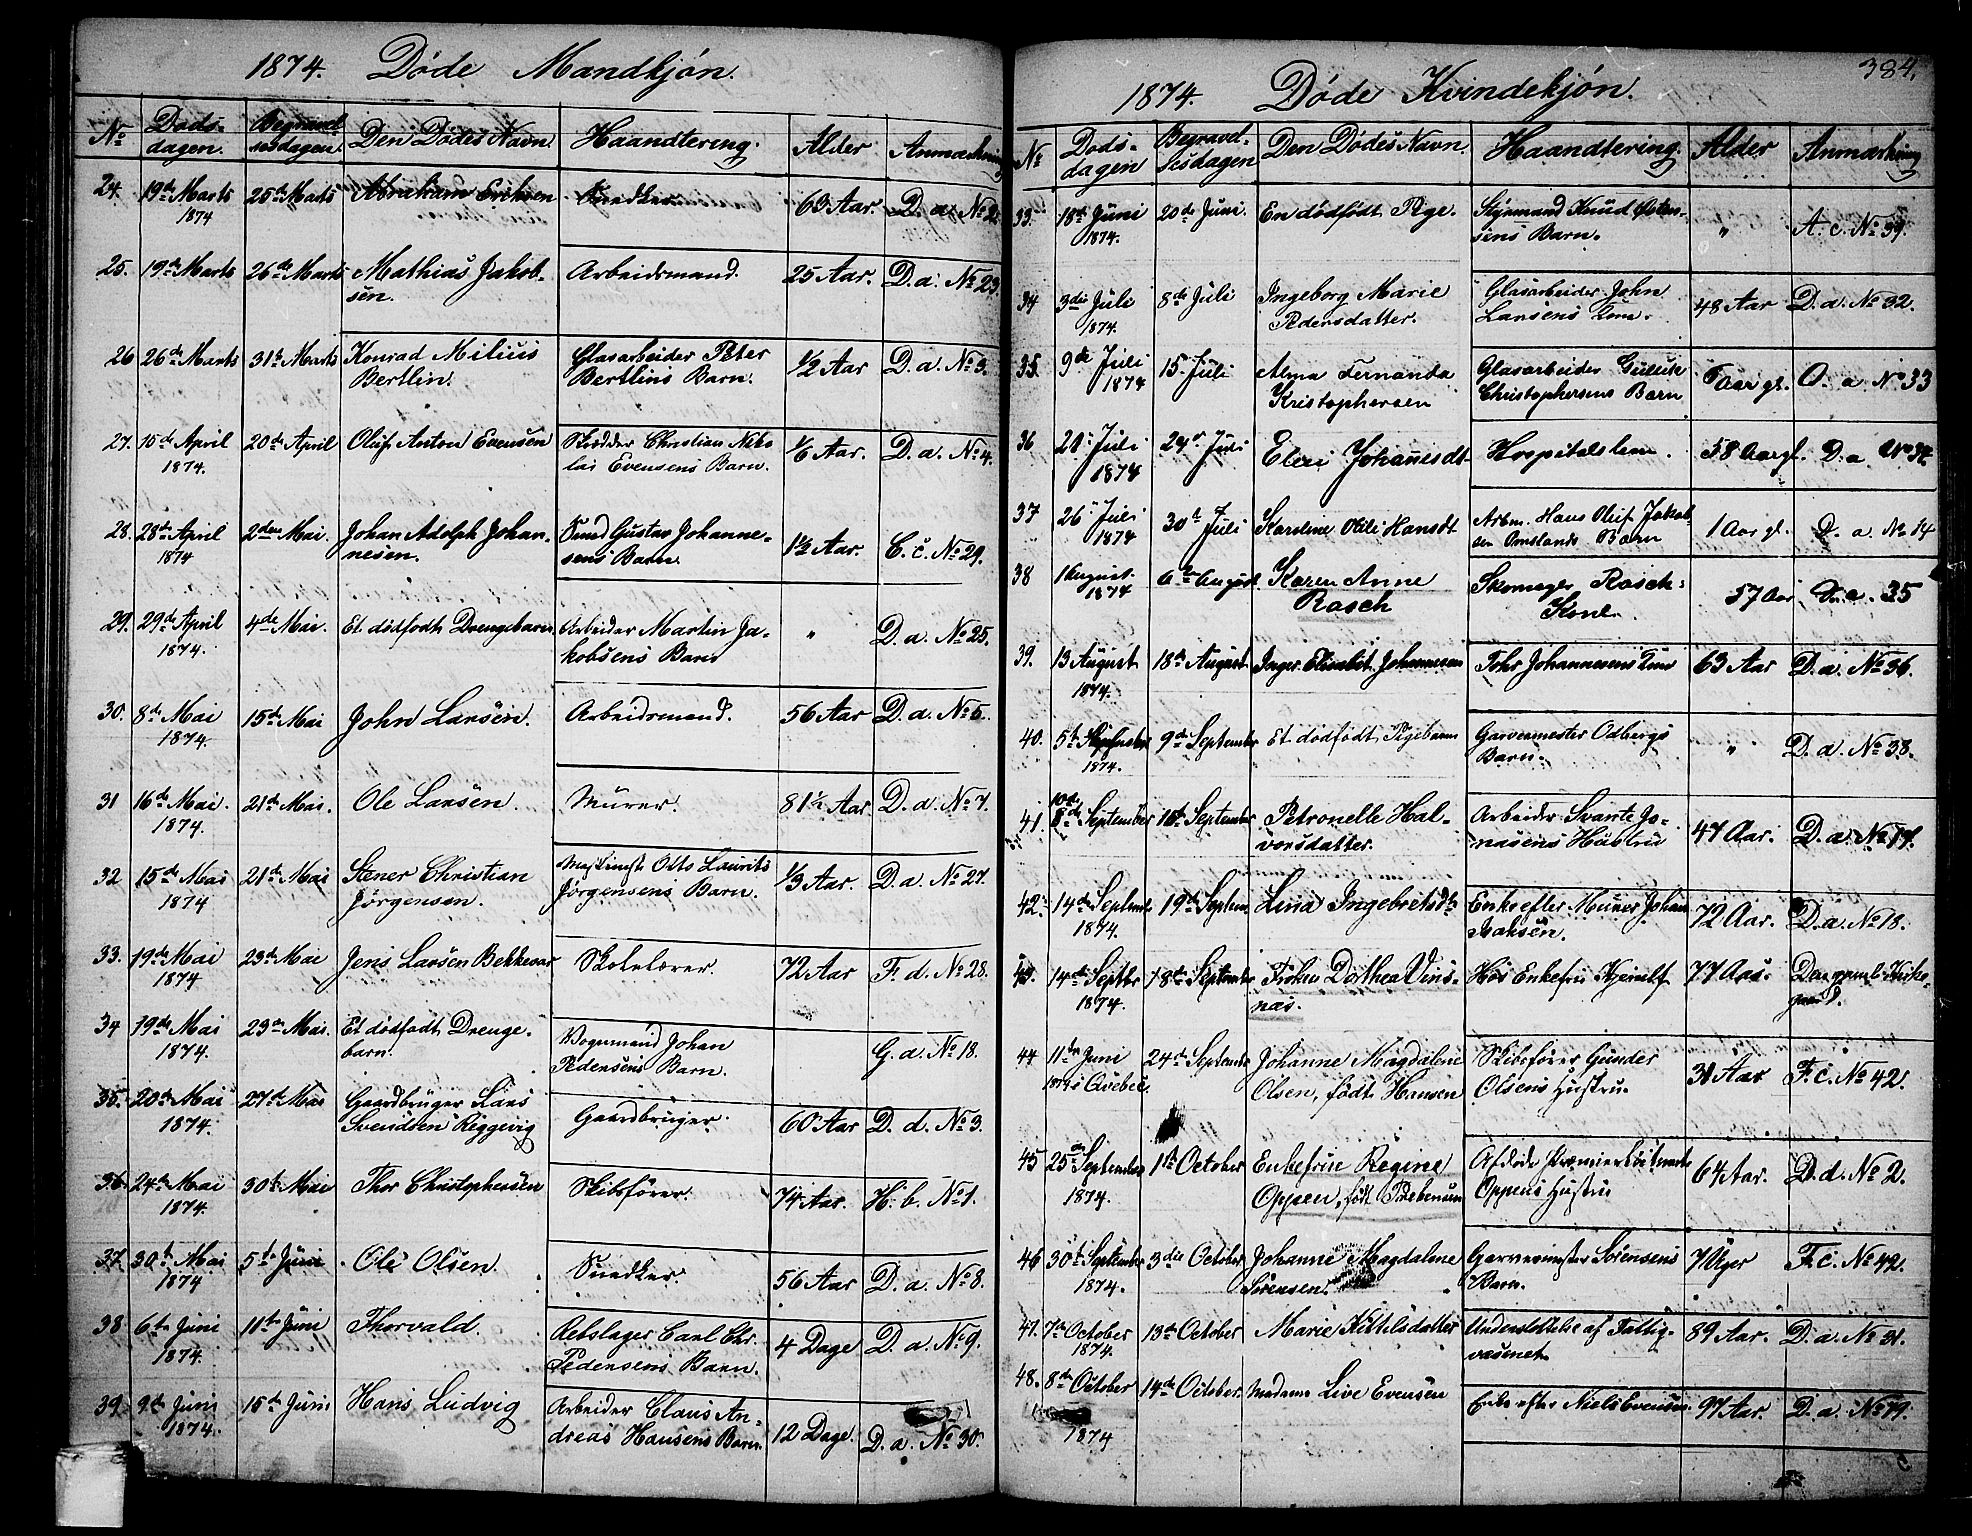 1874. Døde Mandkjøn.
No Døds-dagen. Begravel-sesdagen. Den Dødes Navn. Haandtering. Alder Anmærkning
24. 19de Marts 1874 25de Marts Abraham Eriksen Snedker 63 Aar. D. a. No 2
25. 19de Marts 26de Marts Mathias Jakob-
sen. Arbeidsmand. 25 Aar. D. a. No 23.
26 26de Marts 31te Marts Konrad Milius Glasarbeider Peter 1/2 Aar D. a. No 3.
Bertlin. Bertlins Barn.
27. 15de April 20de April Oluf Anton Evensen Skrædder Christian Niko 1/6 Aar. D. a. No 4.
1874. lai Evensens Barn.
28. 28de April 2den Mai. Johan Adolph Johan- Smed Gustav Johanne- 1 1/2 Aar. C. c. No 29.
1874 nesen. sens Barn.
29. 29de April 4de Mai. Et dødfødt Drengebarn Arbeider Martin Ja- " D. a. No 25.
1874. kobsens Barn
30. 8de Mai 15de Mai John Larsen. Arbeidsmand. 56 Aar D. a. No 5.
1874.
31 16de Mai. 21de Mai. Ole Larsen. Murer. 81 1/2 Aar D. a. No 7.
1874.
32 15de Mai 21de Mai Stener Christian Otto Laurits 1/3 Aar. D. a. No 27.
1874 Jørgensen. Jørgensens Barn.
33. 19de Mai 23de Mai Jens Larsen Bekkevar Skolelærer. 72 Aar F. d. No 28.
1874
34 19de Mai 23de Mai. Et dødfødt Drenge- Vognmand Johan G. d. No 18.
1874. barn. Pedersens Barn.
35. 20de Mai 27de Mai Gaardbruger Lars Gaardbruger. 60 Aar D. d. No 3.
1874. Svendsen Riggevig
36 24de Mai 30te Mai Thor Christophersen Skibsfører. 74 Aar. H. b. No 1.
1874.
37. 30te Mai 5te Juni Ole Olsen. Snedker. 56 Aar D. a. No 8.
1874
38 6te Juni 11te Juni Thorvald. Rebslager Carl Chr. 4 Dage D. a. No 9.
1874. Pedersens Barn.
39. 9de Juni 15de Juni Hans Ludvig Arbeider Claus An- 12 Dage. D. a. No 30.
1874. dreas Hansens Barn.
384.
1874. Døde Kvindekjøn.
No Døds-dagen Begravel-sesdagen Den Dødes Navn. Haandtering. Alder Anmærkning
33. 18de Juni 20de Juni. En dødfødt Pige. Styrmand Knud Osten- " A. c. No 39.
1874. sens Barn.
34 3die Juli 8de Juli Ingeborg Marie Glasarbeider John 48 Aar D. a. No 32.
1874. Pedersdatter. Larsens Kone.
35. 9de Juli 15. Juli Alma Fernanda Glasarbeider Aar gl. D. a No 33
1874 Kristophersen Christophersens Barn
36 Juli Juli Eleni Johannesdt Hospitalslem. 58 Aar gl. D. a. No 34
1874
37 26 Juli 30te Juli Karoline Otilie Hansdt Arbm. Hans Oluf Jakob 1 Aar gl. D. a. No 14
1874 sen Omslands Barn
38 1 August 6te August. Karen Anne Skomager Rasch 57 Aar D. a. 35
1874 Rasch Kone.
39. 13 August 18de August Inger Elisabet Johannesen Johannesens Kone 63 Aar D. a. No 36.
1874.
40. 5te September 9de September Et dødfødt Pigebarn Garvermester Odbergs " D. a. No 38.
1874. Barn.
41. 10de
8de September 16de September Petronelle Hal- Arbeider Svante Jo- 47 Aar. D. a. No 17.
vorsdatter. nasens Hustru
42. 14de Septembr 19de Septem Lina Ingebretsdtr Enke efter Murer Johan 72 Aar. D. a. No 18.
1874. Isaksen.
43. 14de Septbr 18de September Frøken Dorthea Vins- Hos Enkefru 77 Aar. Den gamle Kirke-
1874. næs. gaard.
44 11te Juni 24de Septembr Johanne Magdalene Skibsfører Gunder 31 Aar F. c. No 42.
1874 i Qvebec Olsen, født Hansen Olsens Hustru
45 25de September 1ste October Enkefrue Regine Afdøde Premierløitnant 64 Aar. D. d. No 2.
1874. Oppen, født Oppens Hustru
46 30te September 3die October Johanne Magdalene Garvermester Sørensens 7 Uger F. c. No 42.
1874. Sørensen. Barn.
47. 7de October 13de October Marie Kittelsdatter Understøttelse af Fattig- 89 Aar. D. a. No 31.
1874. væsenet
48. 8de October 14de October. Madame Live Evensen Enke efter Niels Evensen 97 Aar. D. a. No 19.
1874